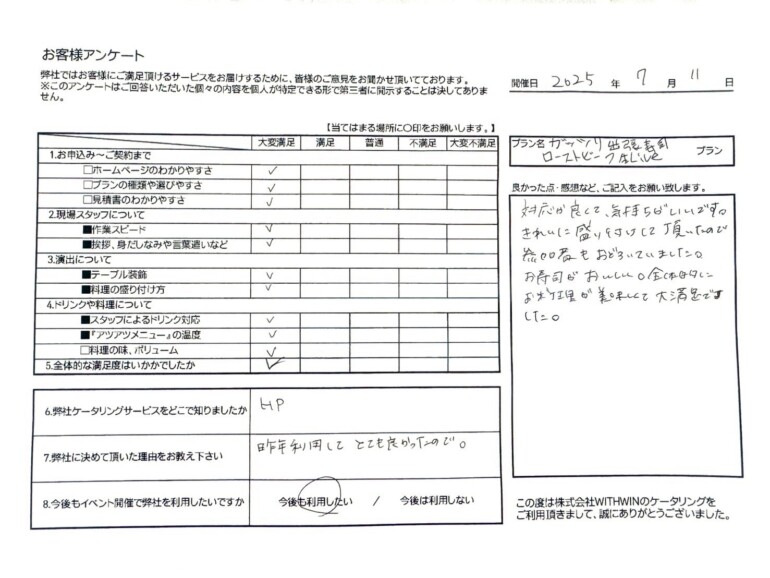 お客様アンケート
弊社ではお客様にご満足頂けるサービスをお届けするために、皆様のご意見をお聞かせ頂いております。
※このアンケートはご回答いただいた個々の内容を個人が特定できる形で第三者に開示することは決してありま
せん。
開催日 2025 年 7 月 11 日
【当てはまる場所に〇印をお願いします。】
大変満足 満足 普通 不満足 大変不満足
1.お申込み～ご契約まで
□ホームページのわかりやすさ ✓
□プランの種類や選びやすさ ✓
□見積書のわかりやすさ ✓
2.現場スタッフについて
■作業スピード ✓
■挨拶、身だしなみや言葉遣いなど ✓
3.演出について
■テーブル装飾 ✓
■料理の盛り付け方 ✓
4.ドリンクや料理について
■スタッフによるドリンク対応 ✓
■『アツアツメニュー』の温度 ✓
□料理の味、ボリューム ✓
5.全体的な満足度はいかかでしたか ✓
6.弊社ケータリングサービスをどこで知りましたか HP
7.弊社に決めて頂いた理由をお教え下さい 昨年利用して とても良かったので。
8.今後もイベント開催で弊社を利用したいですか 今後も利用したい / 今後は利用しない
プラン名 ガッツリ 出張寿司
ローストビーフ Live プラン
良かった点・感想など、ご記入をお願い致します。
対応が良くて、気持ちがいいです。
きれいに盛り付けして頂いたので
参加者もおどろいていました。
お寿司がおいしい。全体的に
お料理が美味しくて大満足で
した。
この度は株式会社WITHWINのケータリングを
ご利用頂きまして、誠にありがとうございました。